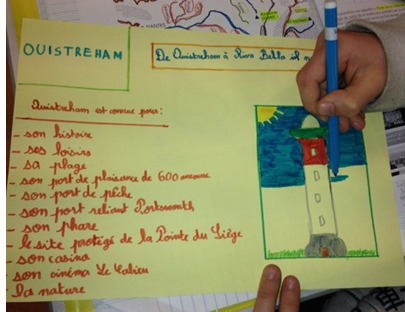 OUISTREHAM
De Ouistreham à Riva Bella il n
Ouistreham est connue pour :
- son histoire
- ses loisirs
- sa plage
- son port de plaisance de 600 anneaux
- son port de pêche
- son port reliant Portsmouth
- son phare
- le site protégé de la Pointe du Siège
- son casino
- son cinéma Le Cabieu
- la nature